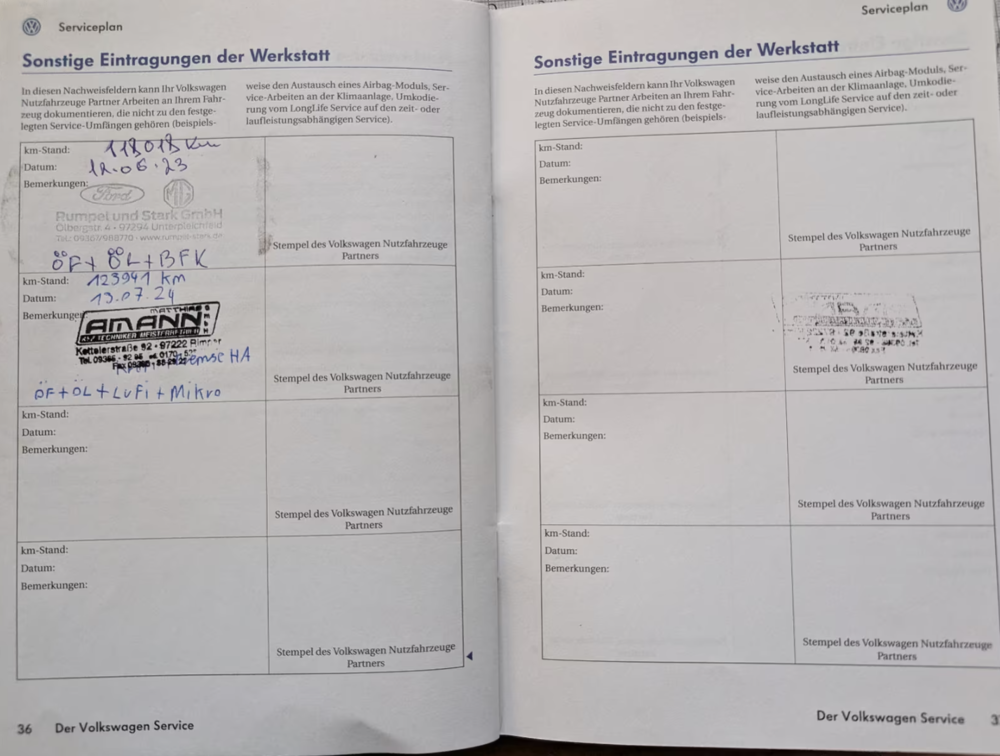 Serviceplan
Sonstige Eintragungen der Werkstatt
In diesen Nachweisfeldern kann Ihr Volkswagen
Nutzfahrzeuge Partner Arbeiten an Ihrem Fahr-
zeug dokumentieren, die nicht zu den festge-
legten Service-Umfängen gehören (beispiels-
weise den Austausch eines Airbag-Moduls, Ser-
vice-Arbeiten an der Klimaanlage, Umkodie-
rung vom LongLife Service auf den zeit- oder
laufleistungsabhängigen Service).
km-Stand: 118018 Km
Datum: 12.06.23
Bemerkungen:
Ford MG
Rumpel und Stark GmbH
Ölbergstr. 4 - 97294 Unterpleichfeld
ÖF + ÖL + BFK
Stempel des Volkswagen Nutzfahrzeuge
Partners
km-Stand: 123941 km
Datum: 13.07.24
Bemerkungen
MATTHIAS
AMANN
KFZ-TECHNIKER MEISTERBETRIEB
Kettelerstraße 92 - 97222
HA
ÖF + ÖL + LuFi + Mikro
Stempel des Volkswagen Nutzfahrzeuge
Partners
km-Stand:
Datum:
Bemerkungen:
Stempel des Volkswagen Nutzfahrzeuge
Partners
km-Stand:
Datum:
Bemerkungen:
Stempel des Volkswagen Nutzfahrzeuge
Partners
36 Der Volkswagen Service
Serviceplan
Sonstige Eintragungen der Werkstatt
In diesen Nachweisfeldern kann Ihr Volkswagen
Nutzfahrzeuge Partner Arbeiten an Ihrem Fahr-
zeug dokumentieren, die nicht zu den festge-
legten Service-Umfängen gehören (beispiels-
weise den Austausch eines Airbag-Moduls, Ser-
vice-Arbeiten an der Klimaanlage, Umkodie-
rung vom LongLife Service auf den zeit- oder
laufleistungsabhängigen Service).
km-Stand:
Datum:
Bemerkungen:
Stempel des Volkswagen Nutzfahrzeuge
Partners
km-Stand:
Datum:
Bemerkungen:
Stempel des Volkswagen Nutzfahrzeuge
Partners
km-Stand:
Datum:
Bemerkungen:
Stempel des Volkswagen Nutzfahrzeuge
Partners
km-Stand:
Datum:
Bemerkungen:
Stempel des Volkswagen Nutzfahrzeuge
Partners
Der Volkswagen Service